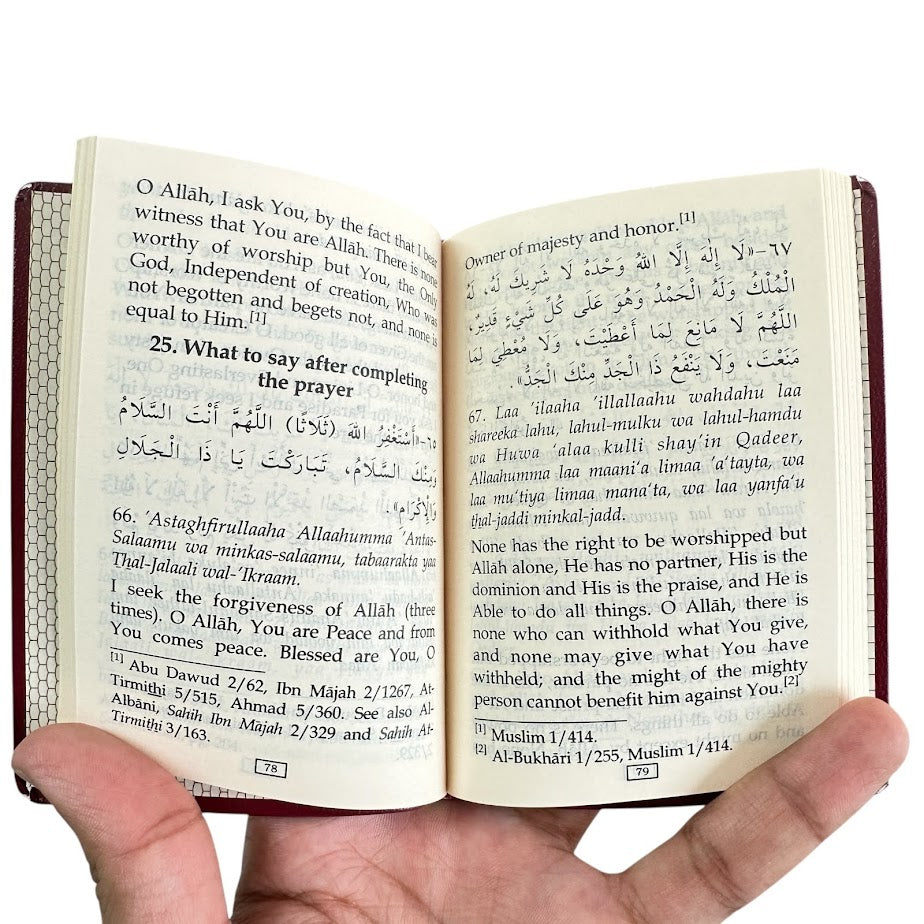 O Allāh, I ask You, by the fact that I bear
witness that You are Allāh. There is none
worthy of worship but You, the Only
God, Independent of creation, Who was
not begotten and begets not, and none is
equal to Him.[1]
25. What to say after completing
the prayer
٦٥-«أَسْتَغْفِرُ اللَّهَ (ثَلَاثًا) اللَّهُمَّ أَنْتَ السَّلَامُ
وَمِنْكَ السَّلَامُ، تَبَارَكْتَ يَا ذَا الْجَلَالِ
وَالْإِكْرَامِ».
66. 'Astaghfirullaaha 'Allaahumma 'Antas-
Salaamu wa minkas-salaamu, tabaarakta yaa
Ṭhal-Jalaali wal-'Ikraam.
I seek the forgiveness of Allāh (three
times). O Allāh, You are Peace and from
You comes peace. Blessed are You, O
[1] Abu Dawud 2/62, Ibn Mājah 2/1267, At-
Tirmiṭhi 5/515, Ahmad 5/360. See also Al-
Albāni, Sahih Ibn Mājah 2/329 and Sahih At-
Tirmiṭhi 3/163.
78
Owner of majesty and honor.[1]
٦٧-«لَا إِلَهَ إِلَّا اللَّهُ وَحْدَهُ لَا شَرِيكَ لَهُ، لَهُ
الْمُلْكُ وَلَهُ الْحَمْدُ وَهُوَ عَلَى كُلِّ شَيْءٍ قَدِيرٌ،
اللَّهُمَّ لَا مَانِعَ لِمَا أَعْطَيْتَ، وَلَا مُعْطِيَ لِمَا
مَنَعْتَ، وَلَا يَنْفَعُ ذَا الْجَدِّ مِنْكَ الْجَدُّ».
67. Laa 'ilaaha 'illallaahu wahdahu laa
shareeka lahu, lahul-mulku wa lahul-hamdu
wa Huwa 'alaa kulli shay'in Qadeer,
Allaahumma laa maani'a limaa 'a'tayta, wa
laa mu'tiya limaa mana'ta, wa laa yanfa'u
ṭhal-jaddi minkal-jadd.
None has the right to be worshipped but
Allāh alone, He has no partner, His is the
dominion and His is the praise, and He is
Able to do all things. O Allāh, there is
none who can withhold what You give,
and none may give what You have
withheld; and the might of the mighty
person cannot benefit him against You.[2]
[1] Muslim 1/414.
[2] Al-Bukhāri 1/255, Muslim 1/414.
79